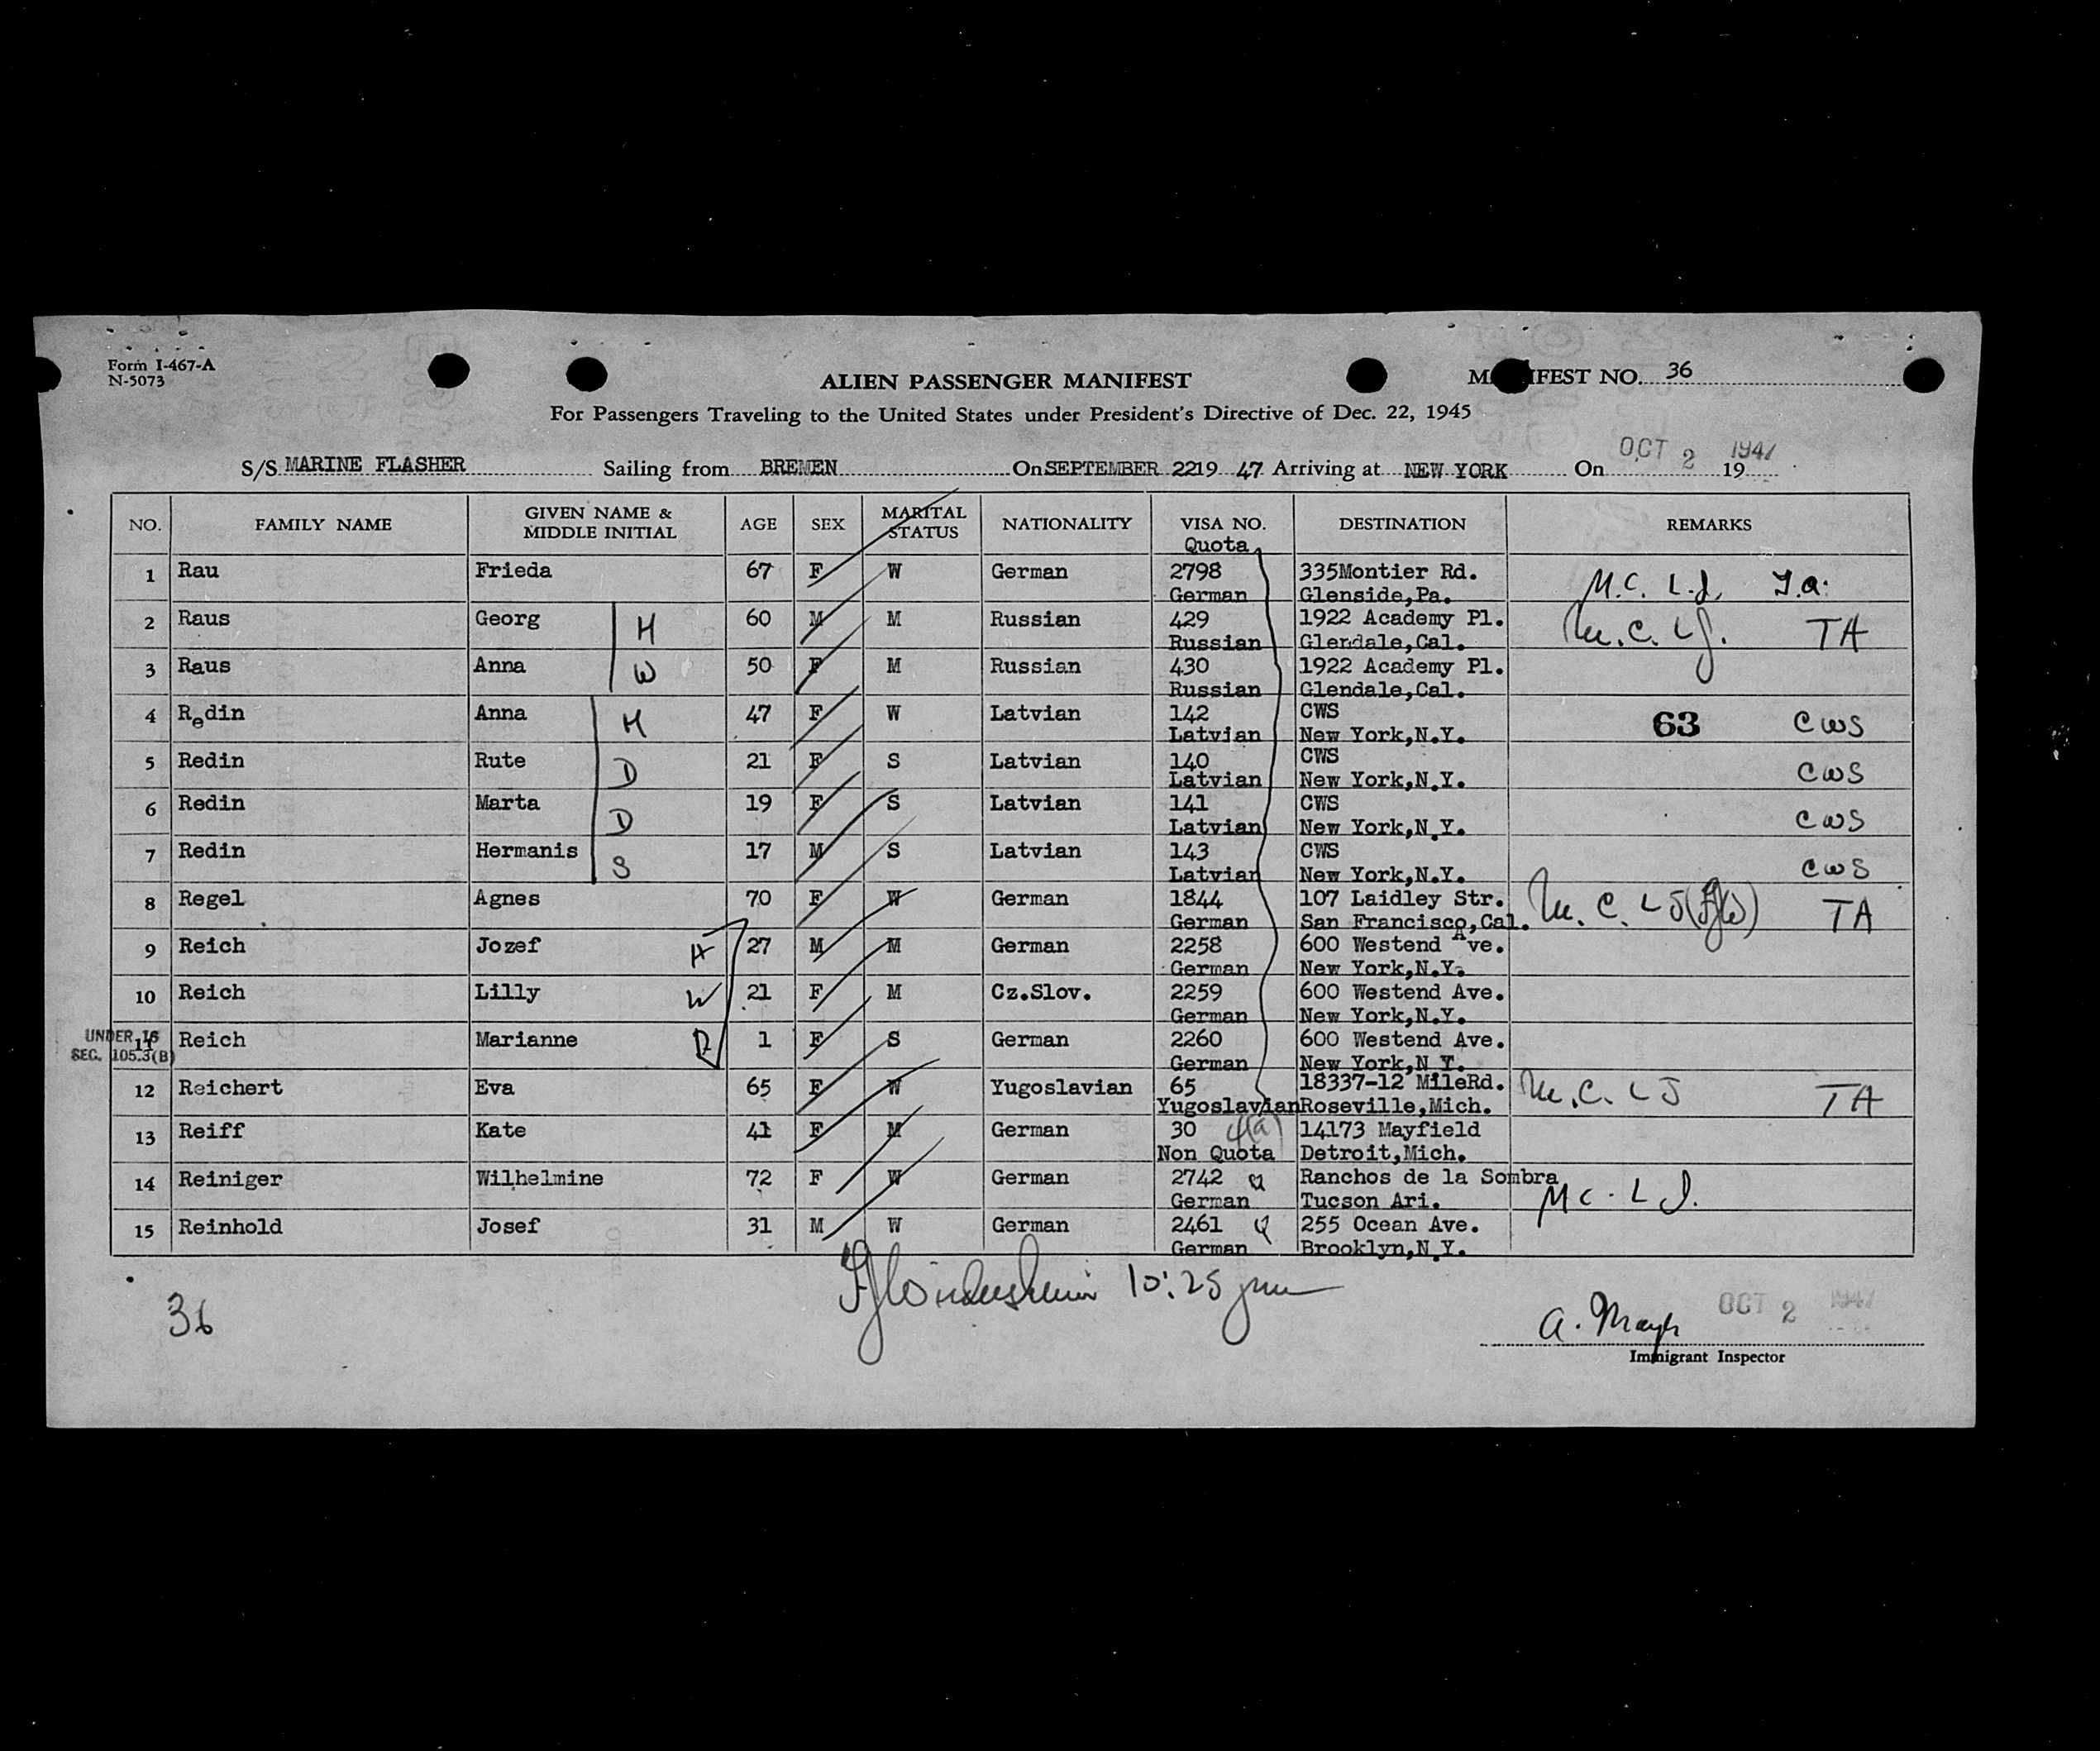 Form I-467-A
N-5073
ALIEN PASSENGER MANIFEST
MANIFEST NO. 36
For Passengers Traveling to the United States under President's Directive of Dec. 22, 1945
S/S MARINE FLASHER Sailing from BREMEN On SEPTEMBER 22 19 47 Arriving at NEW YORK On OCT 2 1947 19
NO. FAMILY NAME GIVEN NAME & MIDDLE INITIAL AGE SEX MARITAL STATUS NATIONALITY VISA NO. DESTINATION REMARKS
Quota
1 Rau Frieda 67 F W German 2798 335Montier Rd. M.C. L.J. T.a.
German Glenside,Pa.
2 Raus Georg H 60 M M Russian 429 1922 Academy Pl. M.C. LJ. TA
Russian Glendale,Cal.
3 Raus Anna W 50 F M Russian 430 1922 Academy Pl.
Russian Glendale,Cal.
4 Redin Anna M 47 F W Latvian 142 CWS 63 CWS
Latvian New York,N.Y.
5 Redin Rute D 21 F S Latvian 140 CWS CWS
Latvian New York,N.Y.
6 Redin Marta D 19 F S Latvian 141 CWS CWS
Latvian New York,N.Y.
7 Redin Hermanis S 17 M S Latvian 143 CWS CWS
Latvian New York,N.Y.
8 Regel Agnes 70 F W German 1844 107 Laidley Str. M.C. LJ TA
German San Francisco,Cal.
9 Reich Jozef H 27 M M German 2258 600 Westend Ave.
German New York,N.Y.
10 Reich Lilly W 21 F M Cz.Slov. 2259 600 Westend Ave.
German New York,N.Y.
UNDER 16
SEC. 105.3(B)
11 Reich Marianne D 1 F S German 2260 600 Westend Ave.
German New York,N Y.
12 Reichert Eva 65 F W Yugoslavian 65 18337-12 MileRd. M.C. LJ TA
Yugoslavian Roseville,Mich.
13 Reiff Kate 41 F M German 30 4(a) 14173 Mayfield
Non Quota Detroit,Mich.
14 Reiniger Wilhelmine 72 F W German 2742 Q Ranchos de la Sombra MC. LJ.
German Tucson Ari.
15 Reinhold Josef 31 M W German 2461 Q 255 Ocean Ave.
German Brooklyn,N.Y.
10:25 pm
36
OCT 2 1947
Immigrant Inspector